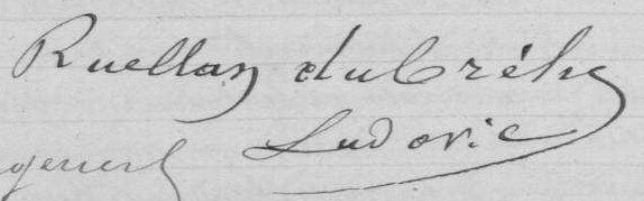 Ruellan du Créhu
Ludovic